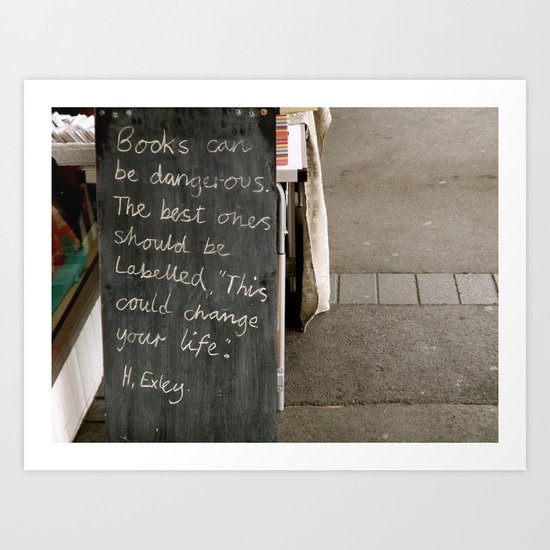 Books can
be dangerous.
The best ones
should be
Labelled, "This
could change
your life".
H. Exley.